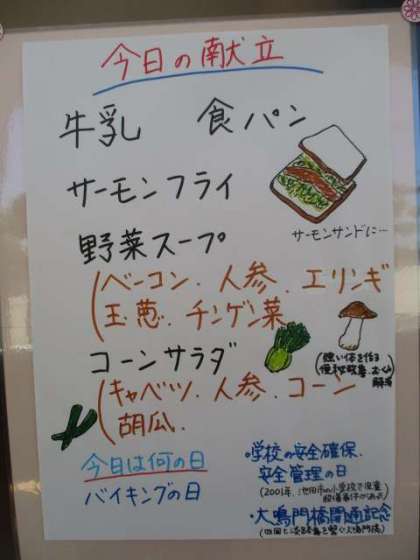 今日の献立
牛乳 食パン
サーモンフライ
サーモンサンドに…
野菜スープ
(ベーコン、人参、エリンギ
玉葱、チンゲン菜
(強い体を作る
便秘改善、むくみ
解消)
コーンサラダ
(キャベツ、人参、コーン
胡瓜、
今日は何の日
バイキングの日
・学校の安全確保、
安全管理の日
(2001年、池田市の小学校で児童
殺傷事件があった)
・大鳴門橋開通記念
(四国と淡路島を繋ぐ大鳴門橋)